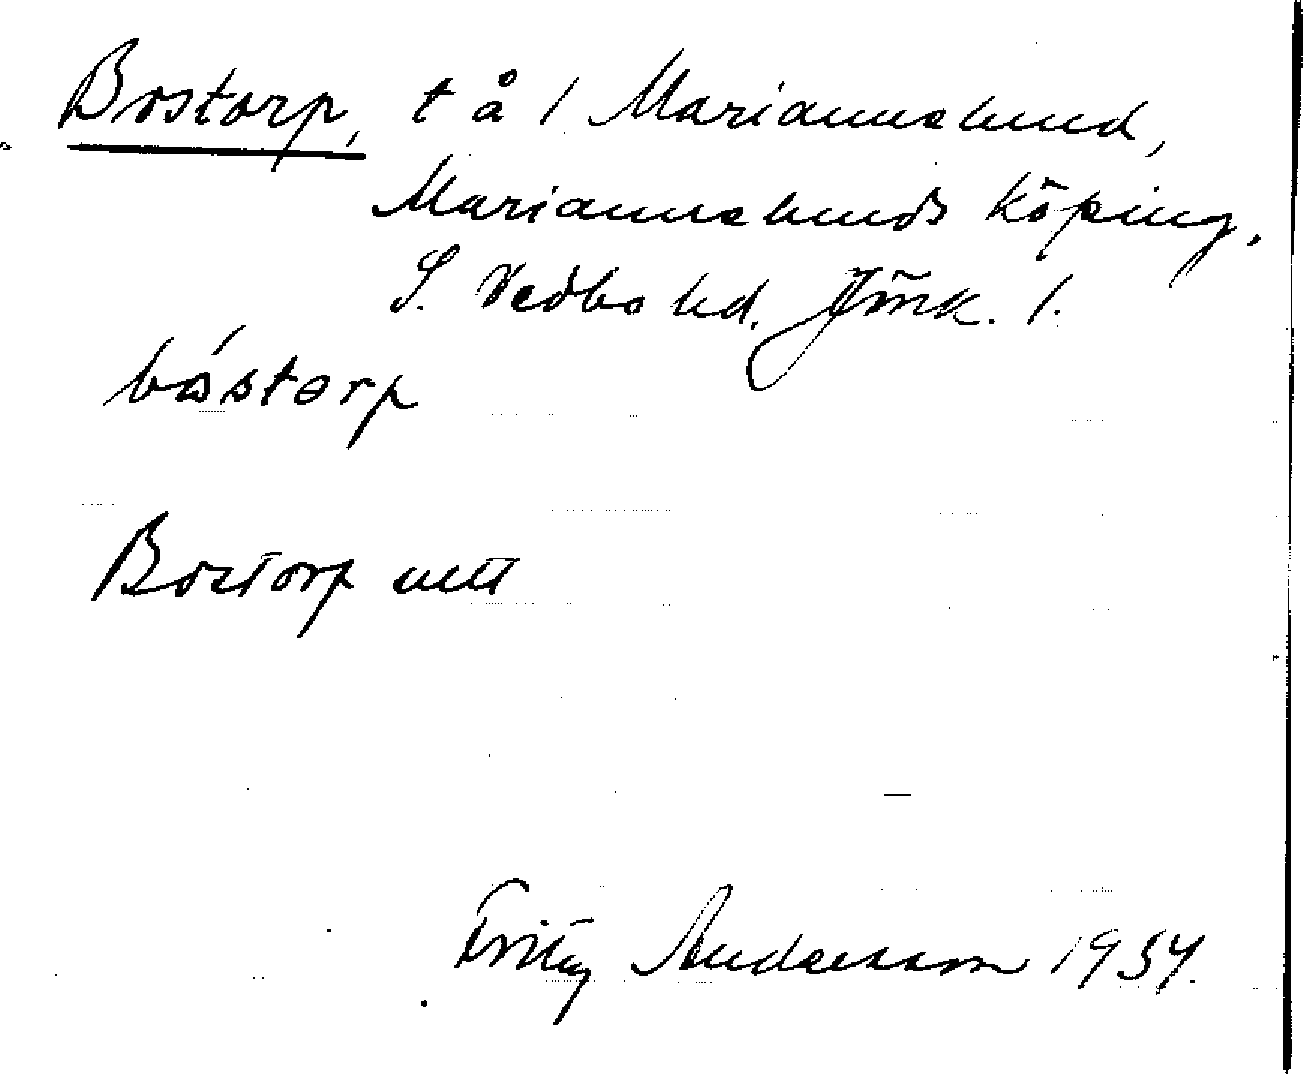 Bostorp, t å 1 Mariannelund,
Mariannelunds köping,
S. Vedbo hd. Jönk. l.
bóstorp
Bostorp utt
Fritz Andersson 1934.